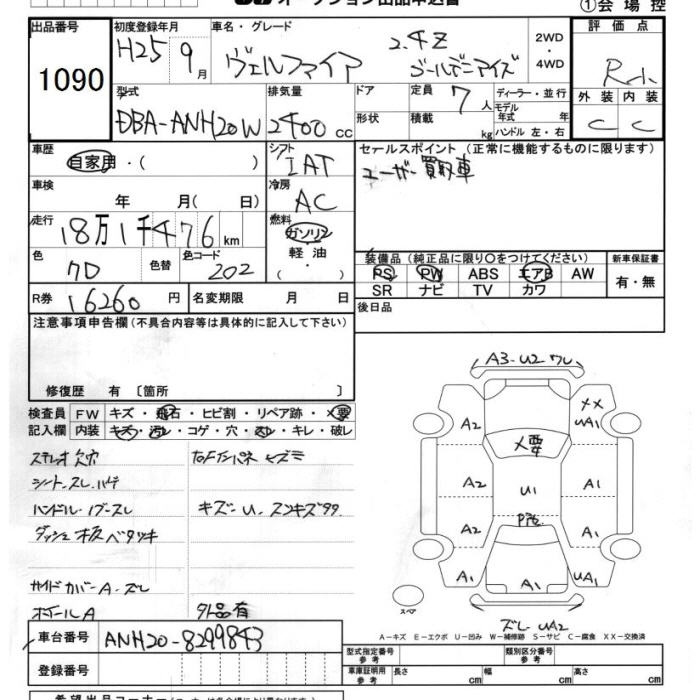 オークション出品申込書
①会場控
出品番号
1090
初度登録年月
H25 9月
車名・グレード
ヴェルファイア 2.4Z ゴールデンアイズ
2WD
・
4WD
評価点
外装 内装
C C
型式
DBA-ANH20W
排気量
2400 cc
ドア
形状
定員 7人
積載 kg
ディーラー・並行
モデル年式 年
ハンドル 左・右
車歴
自家用・( )
シフト
IAT
セールスポイント (正常に機能するものに限ります)
ユーザー買取車
車検
年 月( 日)
冷房
AC
走行
18万1千476km
燃料
ガソリン
軽油
・
( )
色
色替
色コード
202
装備品 (純正品に限り○をつけてください)
PS PW ABS エアB AW
SR ナビ TV カワ
新車保証書
有・無
R券 16260円
名変期限 月 日
後日品
注意事項申告欄(不具合内容等は具体的に記入して下さい)
修復歴 有 〔箇所 〕
検査員記入欄
FW キズ・飛石・ヒビ割・リペア跡・メ要
内装 キズ・汚レ・コゲ・穴・スレ・キレ・破レ
ステレオ欠穴
シート.スレ.ハゲ
ハンドル・ノブ-スレ
ダッシュ板ベタツキ
サイドカバーA-スレ
ホイールA
キズ-U.スンキズ99
外品有
A3-U2 ワレ
A2
XX
UA1
メ要
A2
U1
A1
A2
A1
A1
A1
UA1
スペア
スレ-UA2
A-キズ E-エクボ U-凹み W-補修跡 S-サビ C-腐食 XX-交換済
車台番号
ANH20-8299843
登録番号
型式指定番号 参考
類別区分番号 参考
車庫証明用 参考
長さ cm
幅 cm
高さ cm